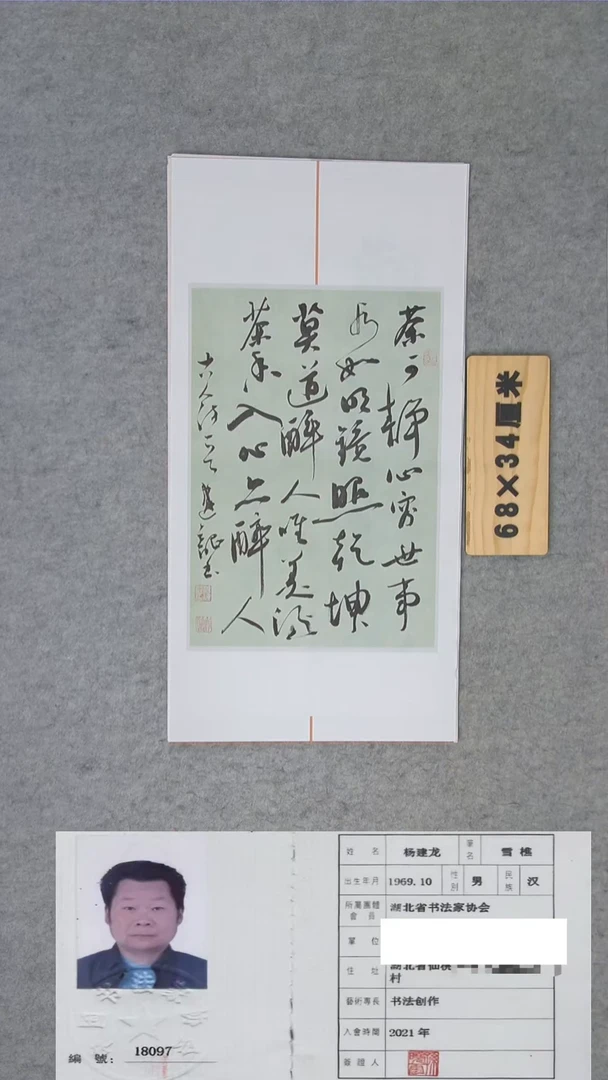 茶可静心穷世事
如明镜照乾坤
莫道醉人唯美酒
茶香入心亦醉人
古人诗一首
书
68×34厘米
姓名 杨建龙 署名 雪樵
出生年月 1969.10 性别 男 民族 汉
所屬團體會員 湖北省书法家协会
單位
住址 湖北省仙桃
村
藝術專長 书法创作
入會時間 2021年
簽證人
編號: 18097